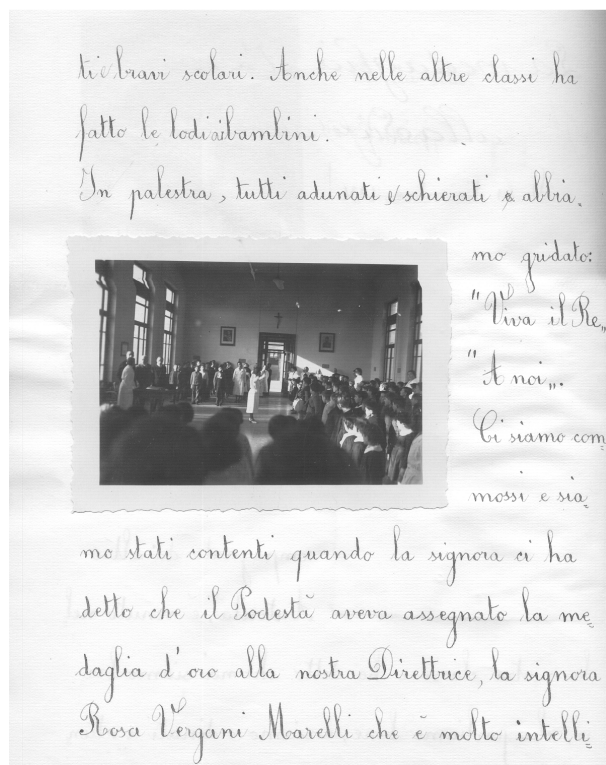 ti bravi scolari. Anche nelle altre classi ha
fatto le lodi ai bambini.
In palestra, tutti adunati e schierati abbia=
mo gridato:
"Viva il Re„
"A noi„.
Ci siamo com=
mossi e sia=
mo stati contenti quando la signora ci ha
detto che il Podestà aveva assegnato la me=
daglia d'oro alla nostra Direttrice, la signora
Rosa Vergani Marelli che è molto intelli=